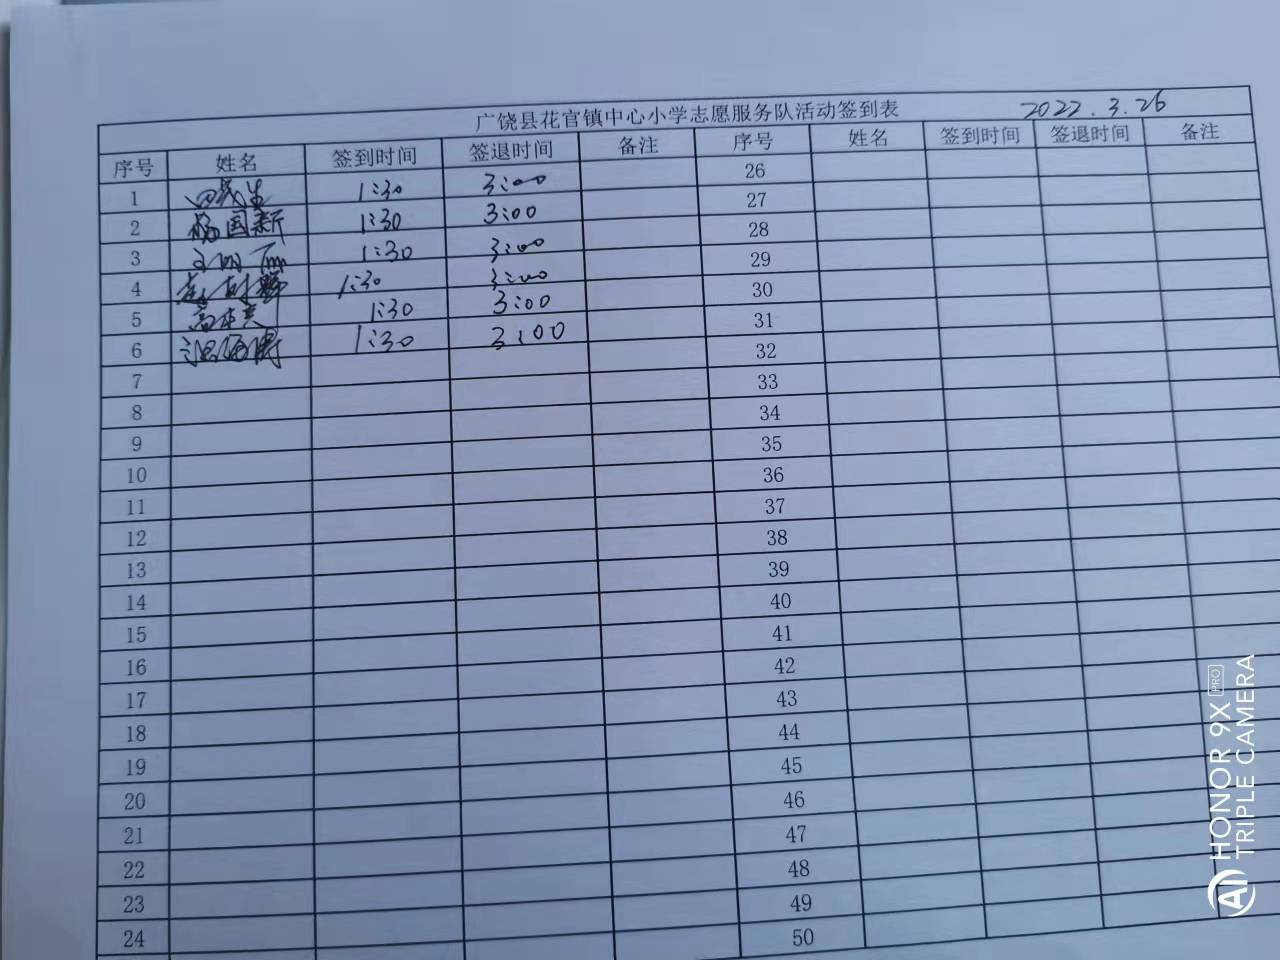 广饶县花官镇中心小学志愿服务队活动签到表 2022.3.26
序号 姓名 签到时间 签退时间 备注 序号 姓名 签到时间 签退时间 备注
1 1:30 3:00 26
2 杨国新 1:30 3:00 27
3 1:30 3:00 28
4 1:30 3:00 29
5 1:30 3:00 30
6 1:30 3:00 31
7 32
8 33
9 34
10 35
11 36
12 37
13 38
14 39
15 40
16 41
17 42
18 43
19 44
20 45
21 46
22 47
23 48
24 49
50
HONOR 9X PRO
TRIPLE CAMERA
AI